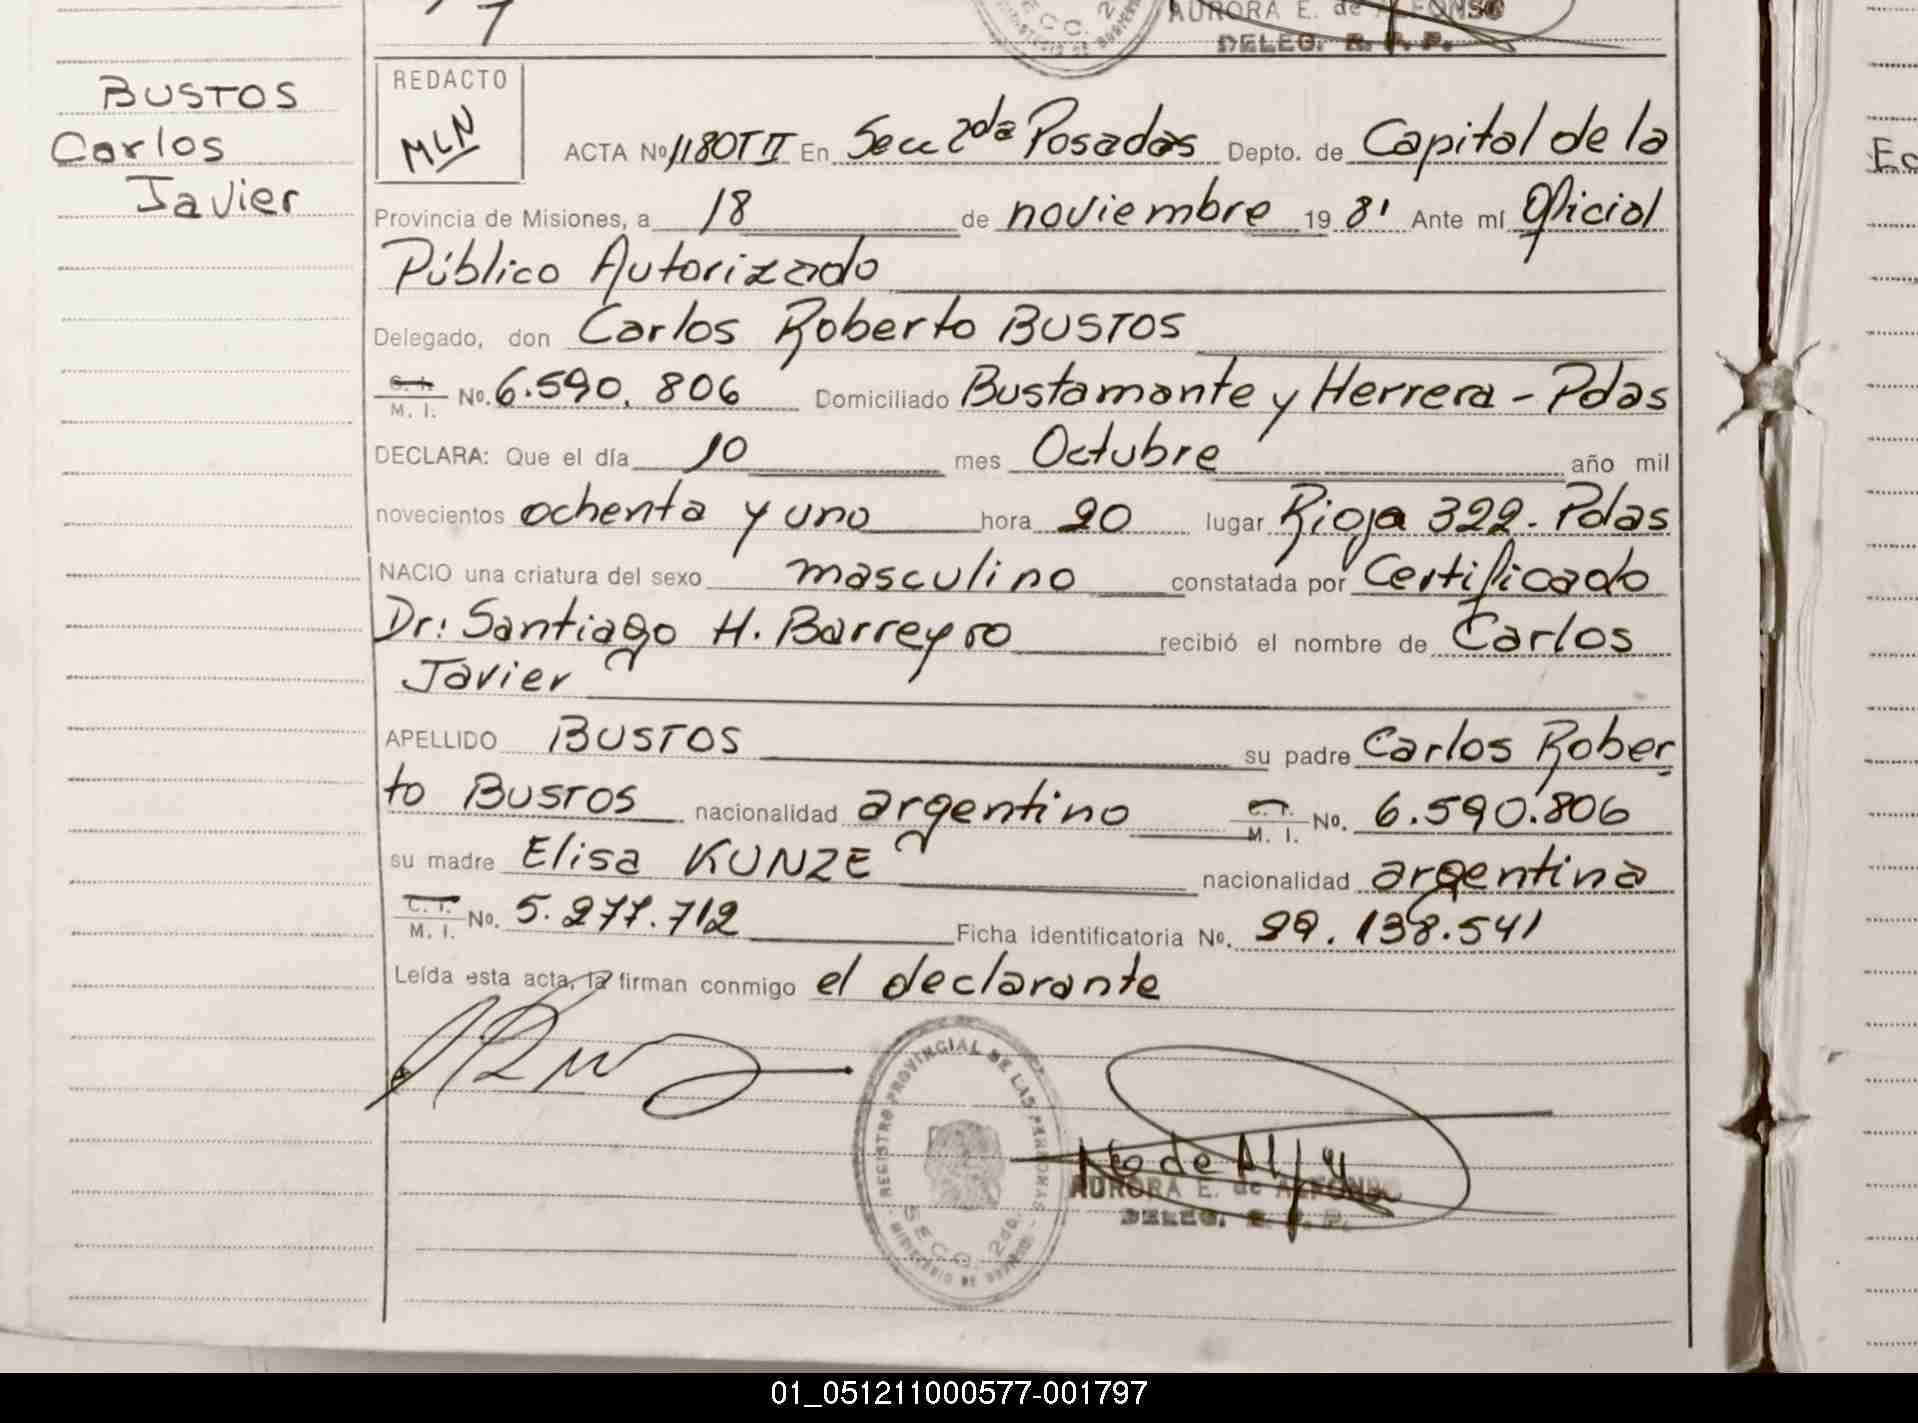 AURORA E. de ALFONSO
DELEG. R. P. P.
BUSTOS
Carlos
Javier
REDACTO
MLN
ACTA Nº 1180 T II En Secc 2da Posadas Depto. de Capital de la
Provincia de Misiones, a 18 de noviembre 19 81 Ante mí Oficial
Público Autorizado
Delegado, don Carlos Roberto BUSTOS
C. I. M. I. Nº. 6.590.806 Domiciliado Bustamante y Herrera - Pdas
DECLARA: Que el día 10 mes Octubre año mil
novecientos ochenta y uno hora 20 lugar Rioja 322 - Pdas
NACIO una criatura del sexo masculino constatada por Certificado
Dr: Santiago H. Barreyro recibió el nombre de Carlos
Javier
APELLIDO BUSTOS su padre Carlos Rober
to BUSTOS nacionalidad argentino C. I. M. I. Nº. 6.590.806
su madre Elisa KUNZE nacionalidad argentina
C. I. M. I. Nº. 5.277.712 Ficha identificatoria Nº. 29.138.541
Leída esta acta, la firman conmigo el declarante
REGISTRO PROVINCIAL DE LAS PERSONAS
SECC. 2da.
MINISTERIO DE GOBIERNO
AURORA E. de ALFONSO
DELEG. R. P. P.
01_051211000577-001797